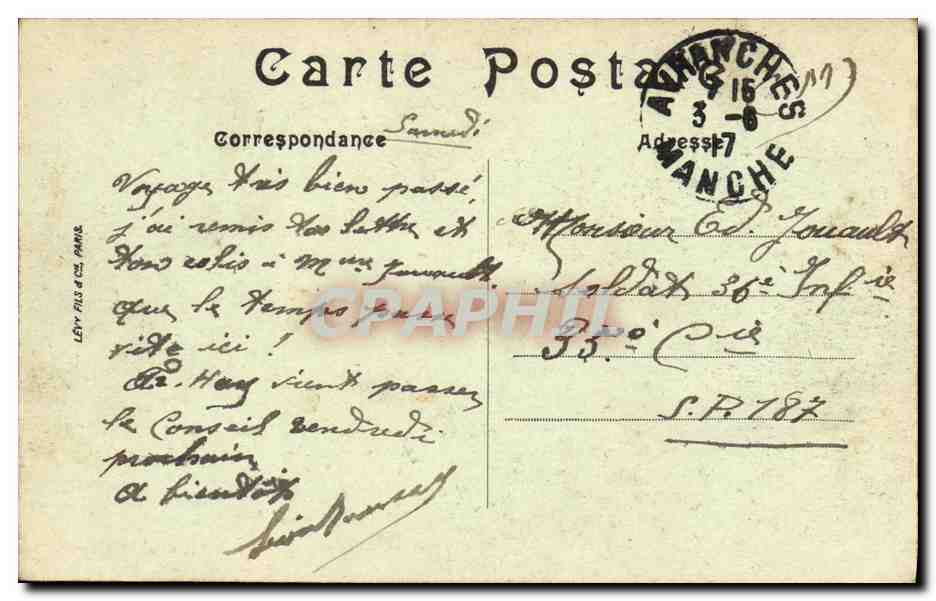 Carte Posta
AVRANCHES
15
3 -6
17
MANCHE
Samedi
Correspondance
Adresse
Voyage très bien passé,
j'ai remis tas lettre et
ton colis à Mme Jouault.
que le temps passe
vite ici !
Hay vient passer
le Conseil vendredi
prochain
A bientôt
Monsieur Ed. Jouault
Soldat 36è Infie
35è Cie
S.P. 187
LÉVY FILS & Cie, PARIS.
CPAPHIL